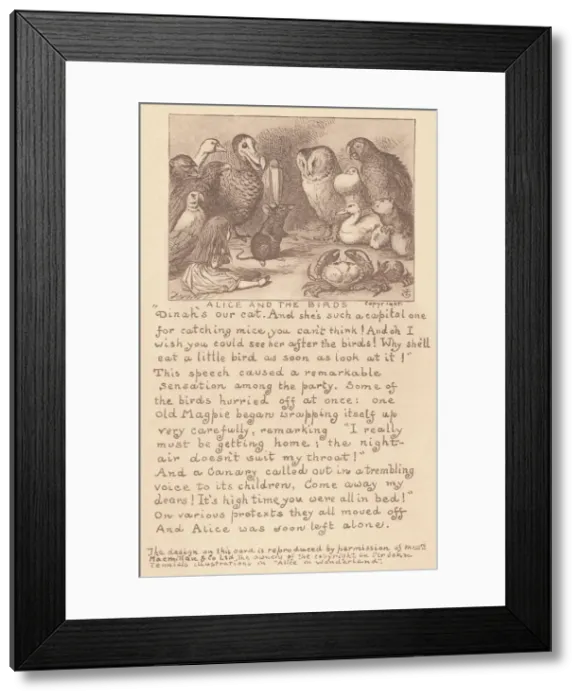 ALICE AND THE BIRDS Copyright
"Dinah's our cat. And she's such a capital one
for catching mice, you can't think! And oh I
wish you could see her after the birds! Why she'll
eat a little bird as soon as look at it!"
This speech caused a remarkable
sensation among the party. Some of
the birds hurried off at once: one
old Magpie began wrapping itself up
very carefully, remarking "I really
must be getting home; the night-
air doesn't suit my throat!"
And a Canary called out in a trembling
voice to its children, Come away my
dears! It's high time you were all in bed!"
On various pretexts they all moved off
And Alice was soon left alone.
The design on this card is reproduced by permission of Messrs
Macmillan & Co Ltd. the owners of the copyright in Sir John
Tenniel's illustrations in "Alice in Wonderland".